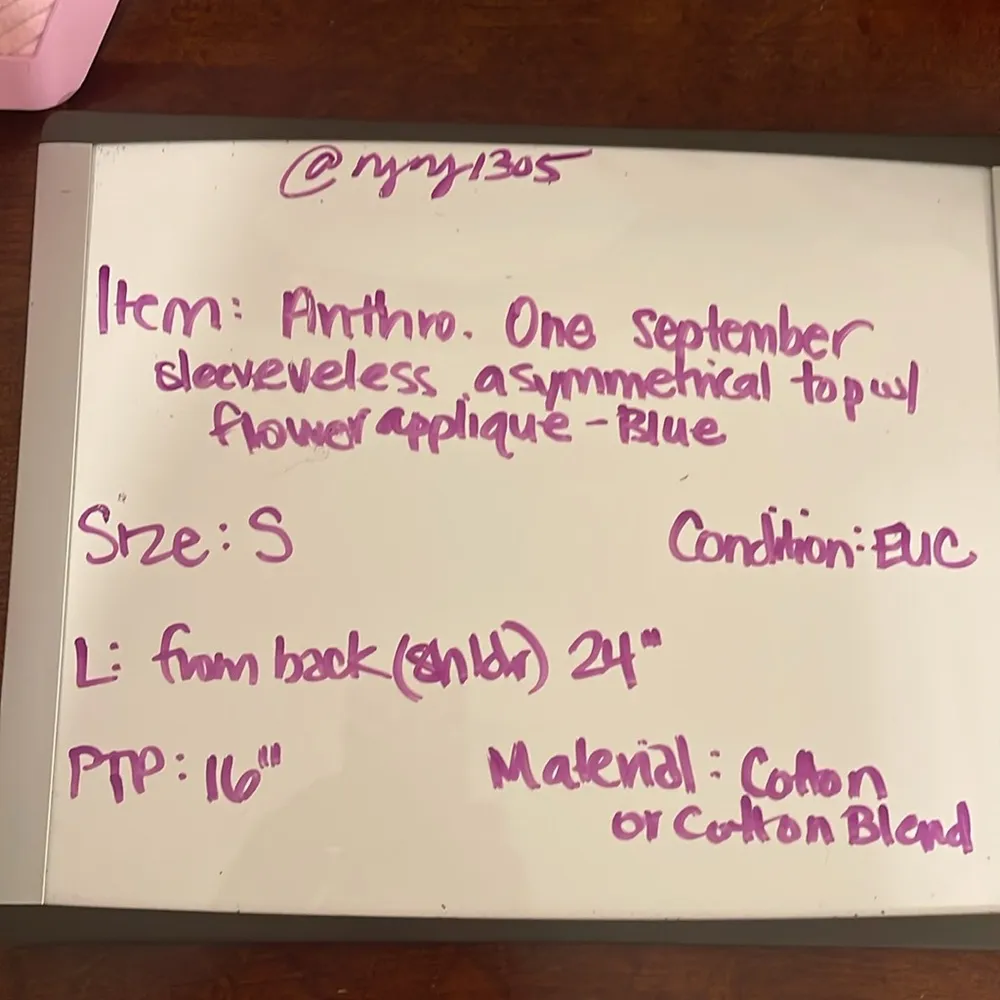 @nyny1305
Item: Anthro. One september
sleeveveless asymmetrical top w/
flower applique - Blue
Size: S
Condition: EUC
L: from back (shldr) 24"
PTP: 16"
Material: Cotton
or Cotton Blend